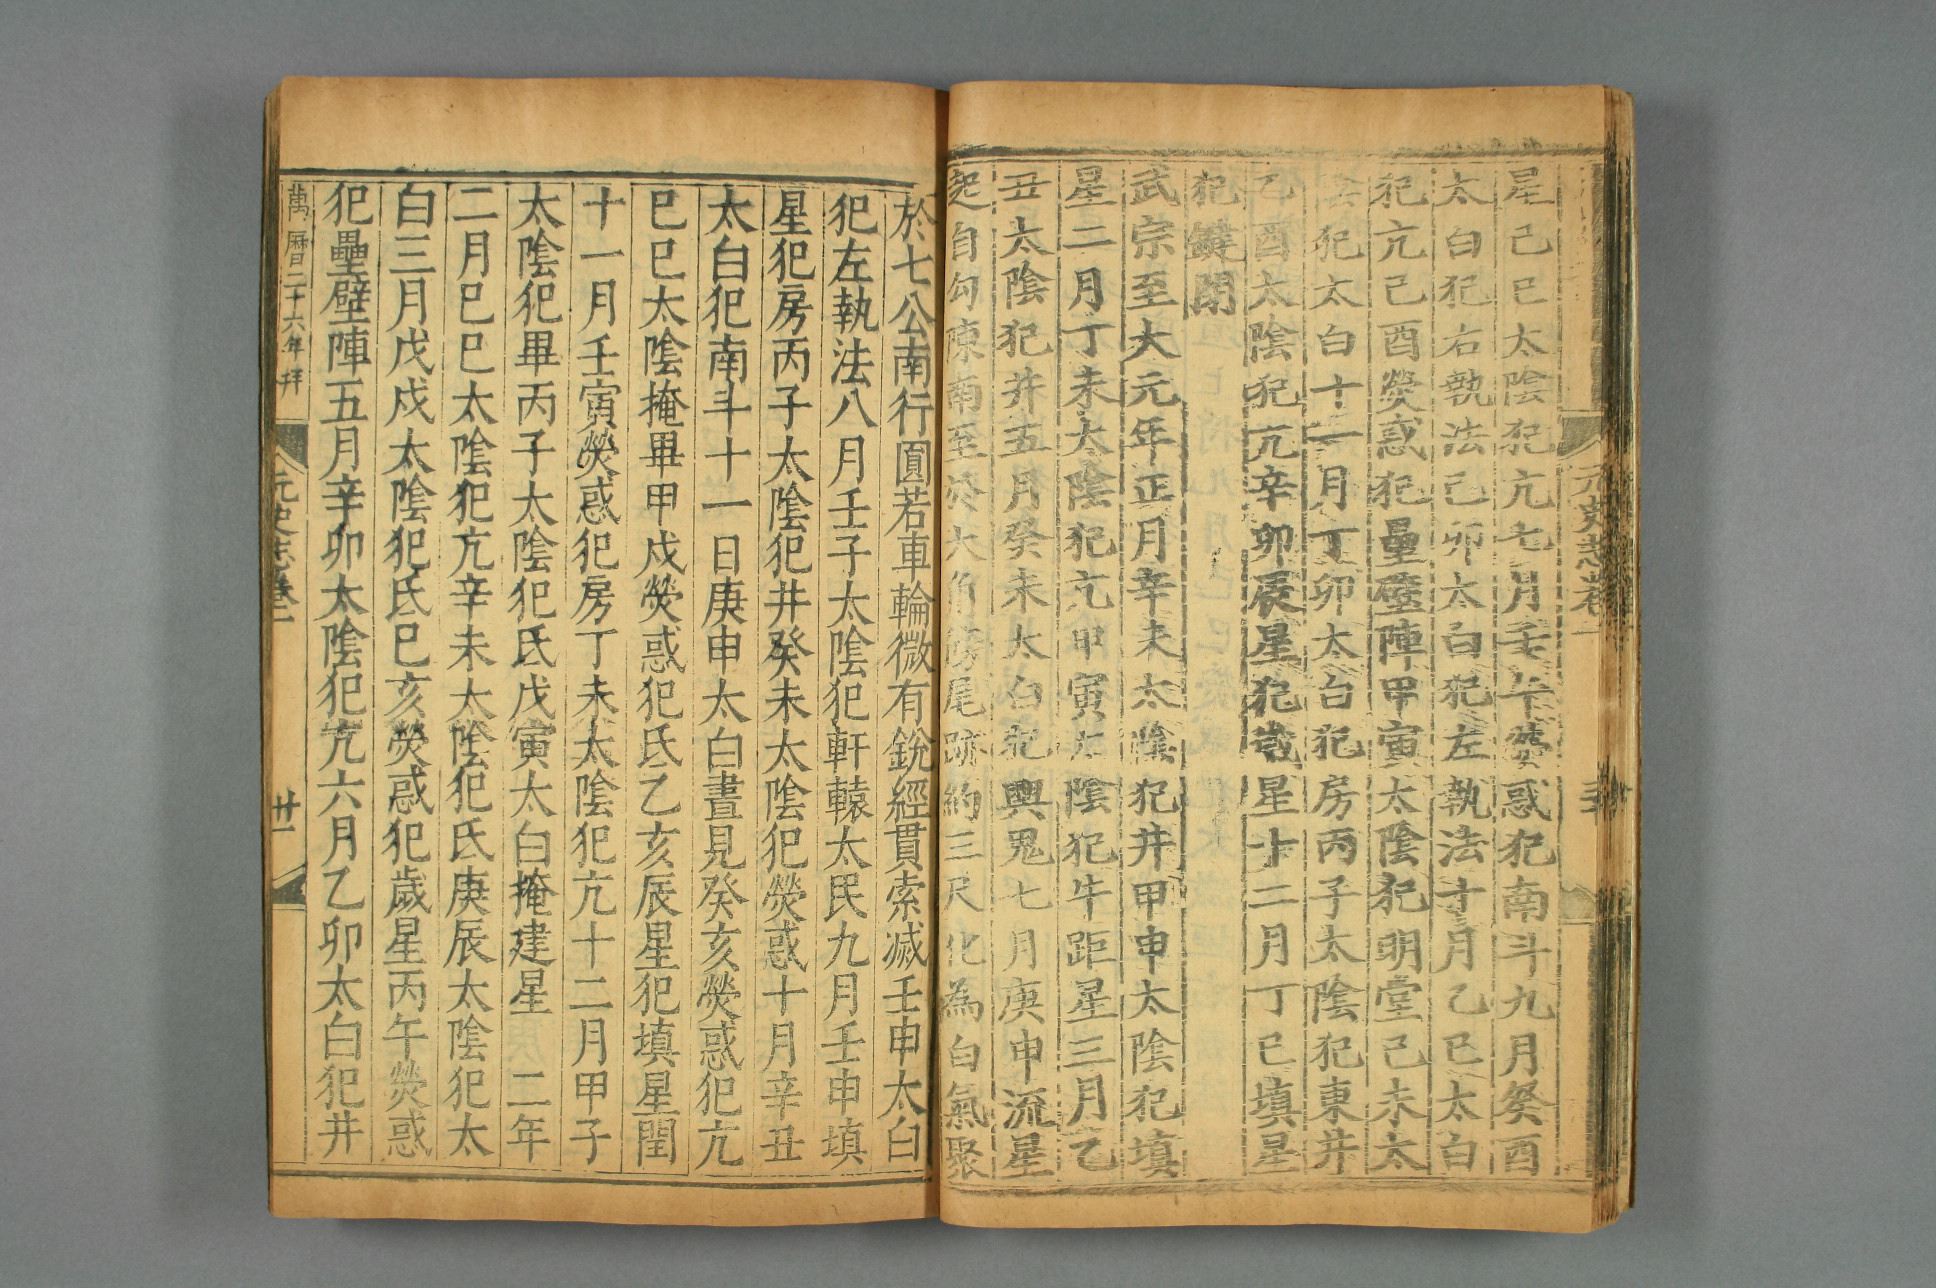 元史志卷一
三十
星己巳太陰犯亢七月壬午熒惑犯南斗九月癸酉
太白犯右執法己卯太白犯左執法十月乙巳太白
犯亢己酉熒惑犯壘壁陣甲寅太陰犯明堂己未太
陰犯太白十一月丁卯太白犯房丙子太陰犯東井
乙酉太陰犯亢辛卯辰星犯歲星十二月丁巳填星
犯鍵閉
武宗至大元年正月辛未太陰犯井甲申太陰犯填
星二月丁未太陰犯亢甲寅太陰犯牛距星三月乙
丑太陰犯井五月癸未太白犯輿鬼七月庚申流星
起自勾陳南至於大角傍尾跡約三尺化為白氣聚
於七公南行圓若車輪微有銳經貫索滅壬申太白
犯左執法八月壬子太陰犯軒轅太民九月壬申填
星犯房丙子太陰犯井癸未太陰犯熒惑十月辛丑
太白犯南斗十一日庚申太白晝見癸亥熒惑犯亢
巳巳太陰掩畢甲戍熒惑犯氐乙亥辰星犯填星閏
十一月壬寅熒惑犯房丁未太陰犯亢十二月甲子
太陰犯畢丙子太陰犯氐戊寅太白掩建星 二年
二月巳巳太陰犯亢辛未太陰犯氐庚辰太陰犯太
白三月戊戍太陰犯氐巳亥熒惑犯歲星丙午熒惑
犯壘壁陣五月辛卯太陰犯亢六月乙卯太白犯井
萬曆二十六年刊
元史志卷一
廿一